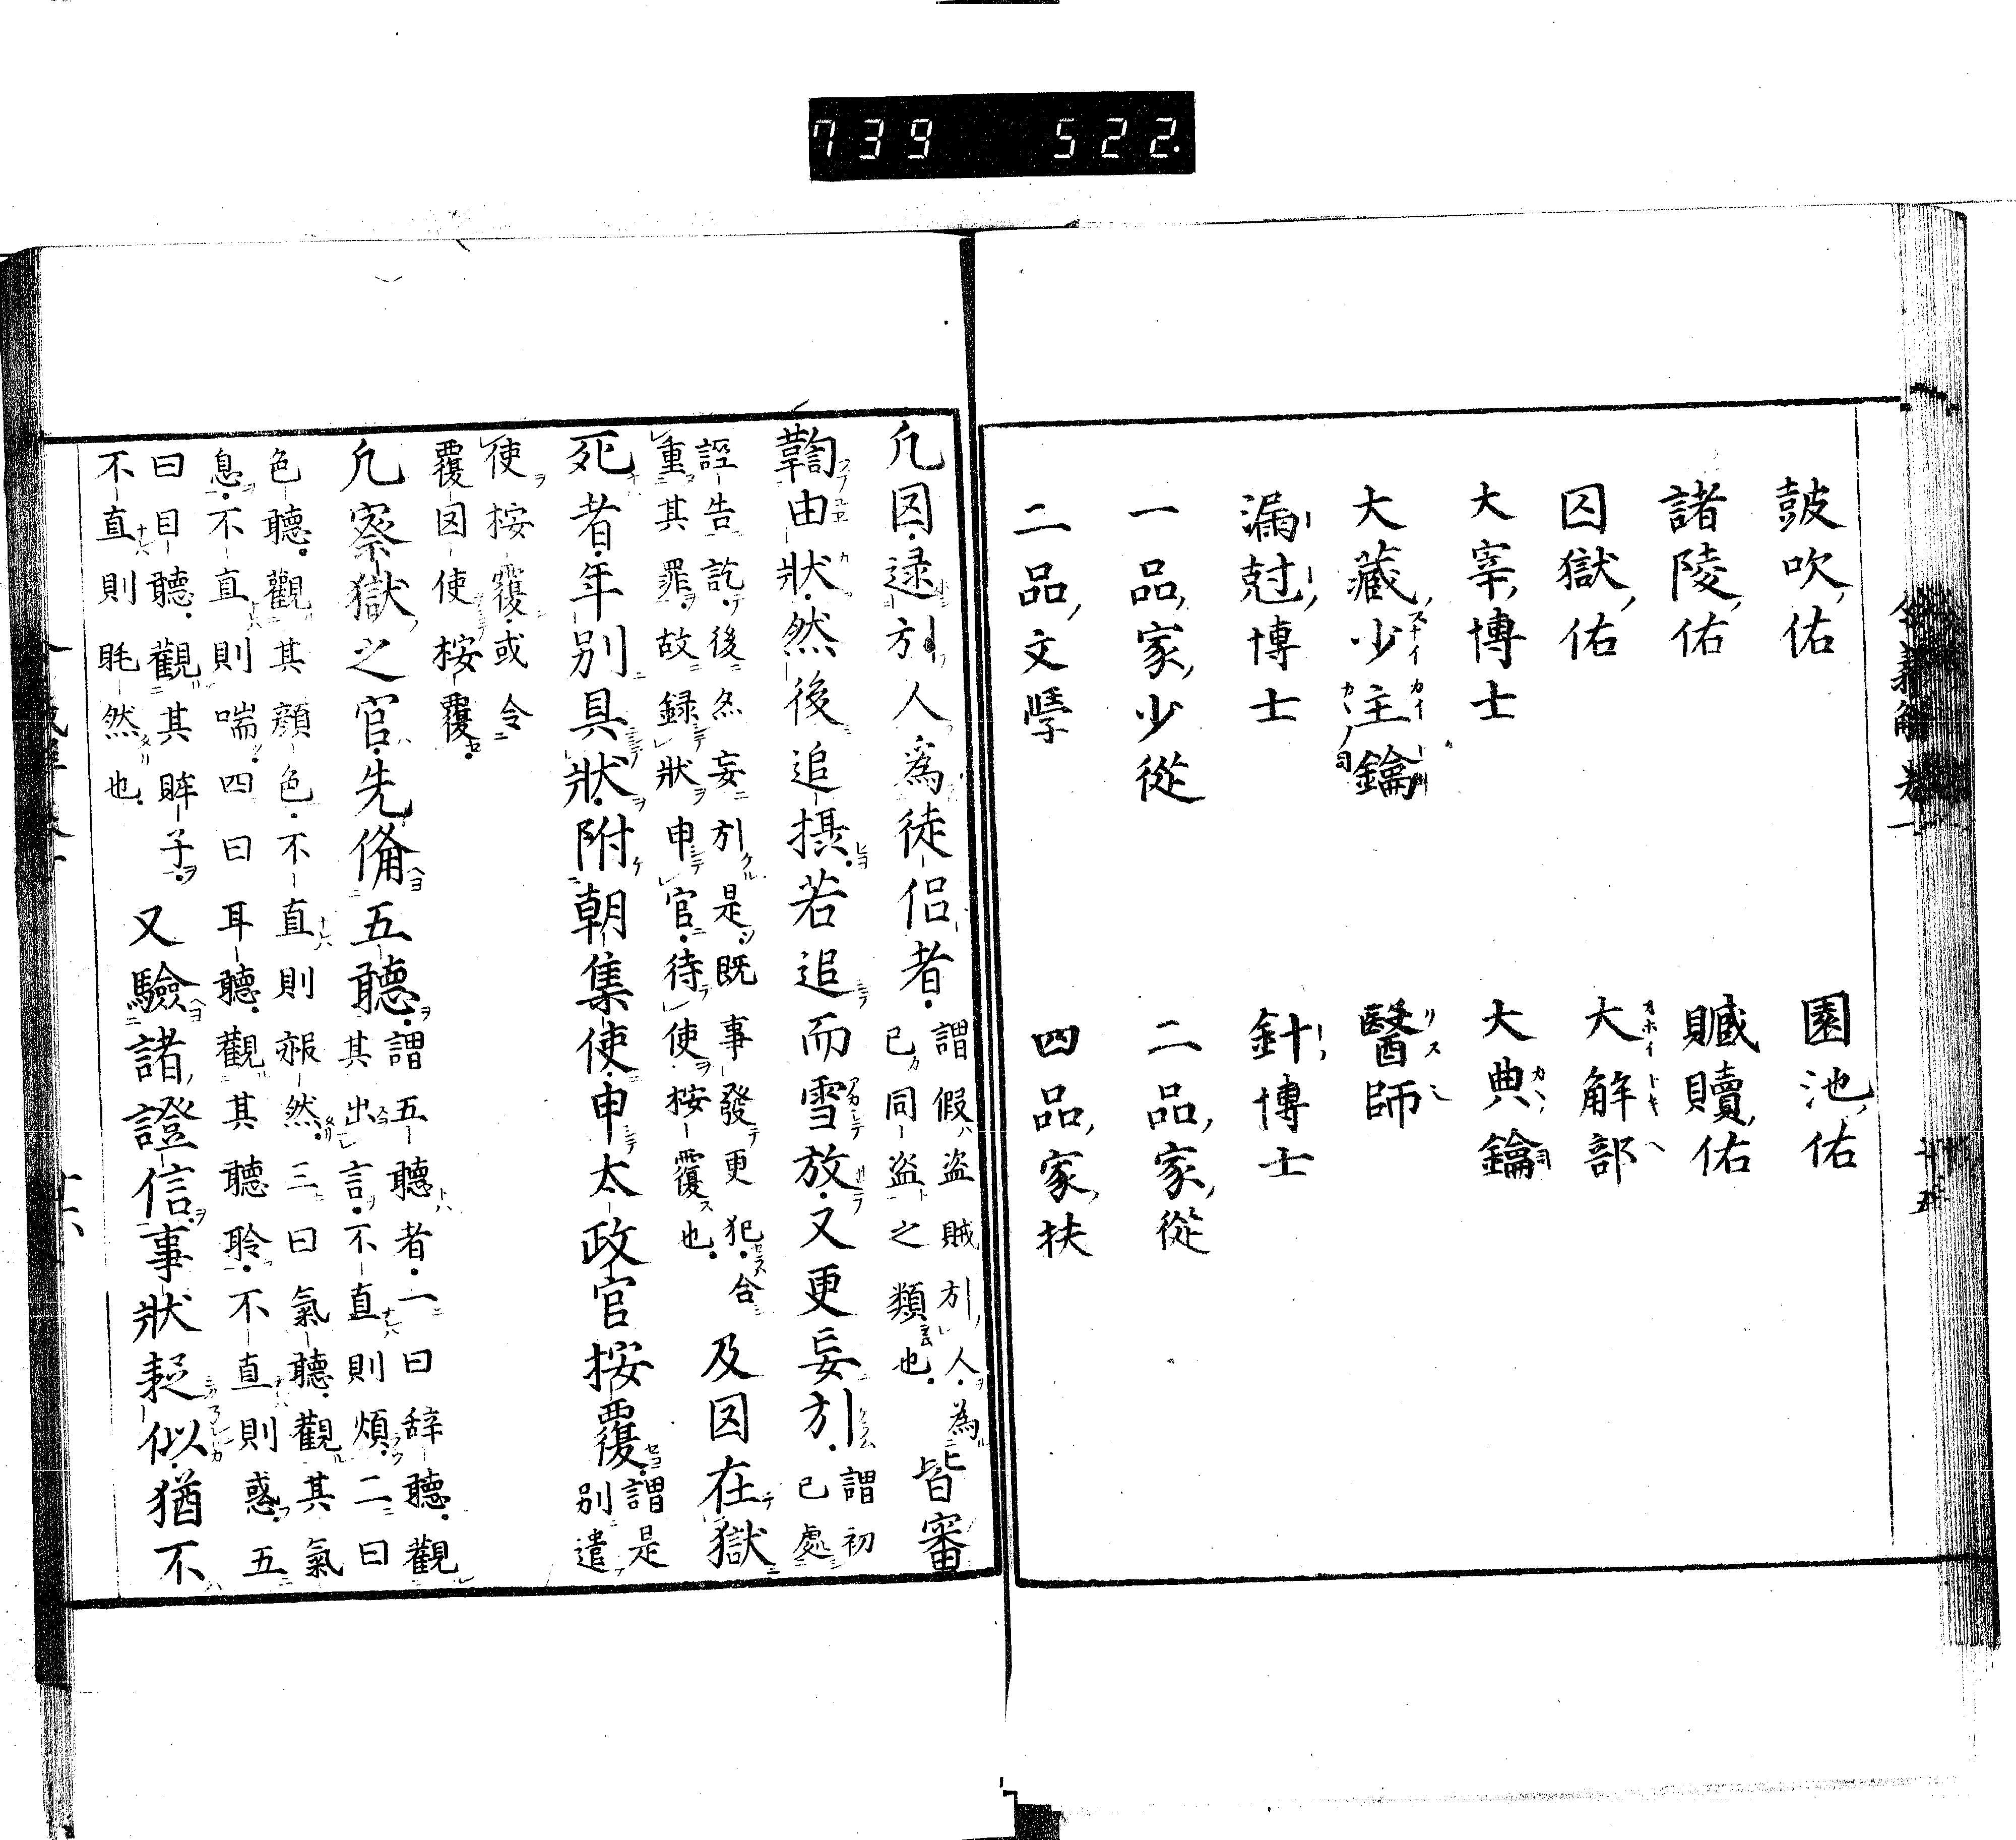 739 522
鼓吹佑 園池佑
諸陵佑 贓贖佑
囚獄佑 大解部
大宰博士 大典鑰
大藏少主鑰 醫師
漏尅博士 針博士
一品家少從 二品家從
二品文學 四品家扶
凢囚逮引人爲徒侶者
謂假盗賊引人爲
已同盗之類也
皆審
鞫由狀然後追攝若追而雪放又更妄引
謂初
已處
誣告訖後更妄引是既事發更犯合
重其罪故録狀申官待使按覆也
及囚在獄
死者年別具狀附朝集使申太政官按覆
謂是
別遣
使按覆或令
覆囚使按覆
凢察獄之官先備五聽
謂五聽者一曰辭聽觀
其出言不直則煩二曰
色聽觀其顔色不直則赧然三曰氣聽觀其氣
息不直則喘四曰耳聽觀其聽聆不直則惑五
曰目聽觀其眸子
不直則眊然也
又驗諸證信事狀疑似猶不